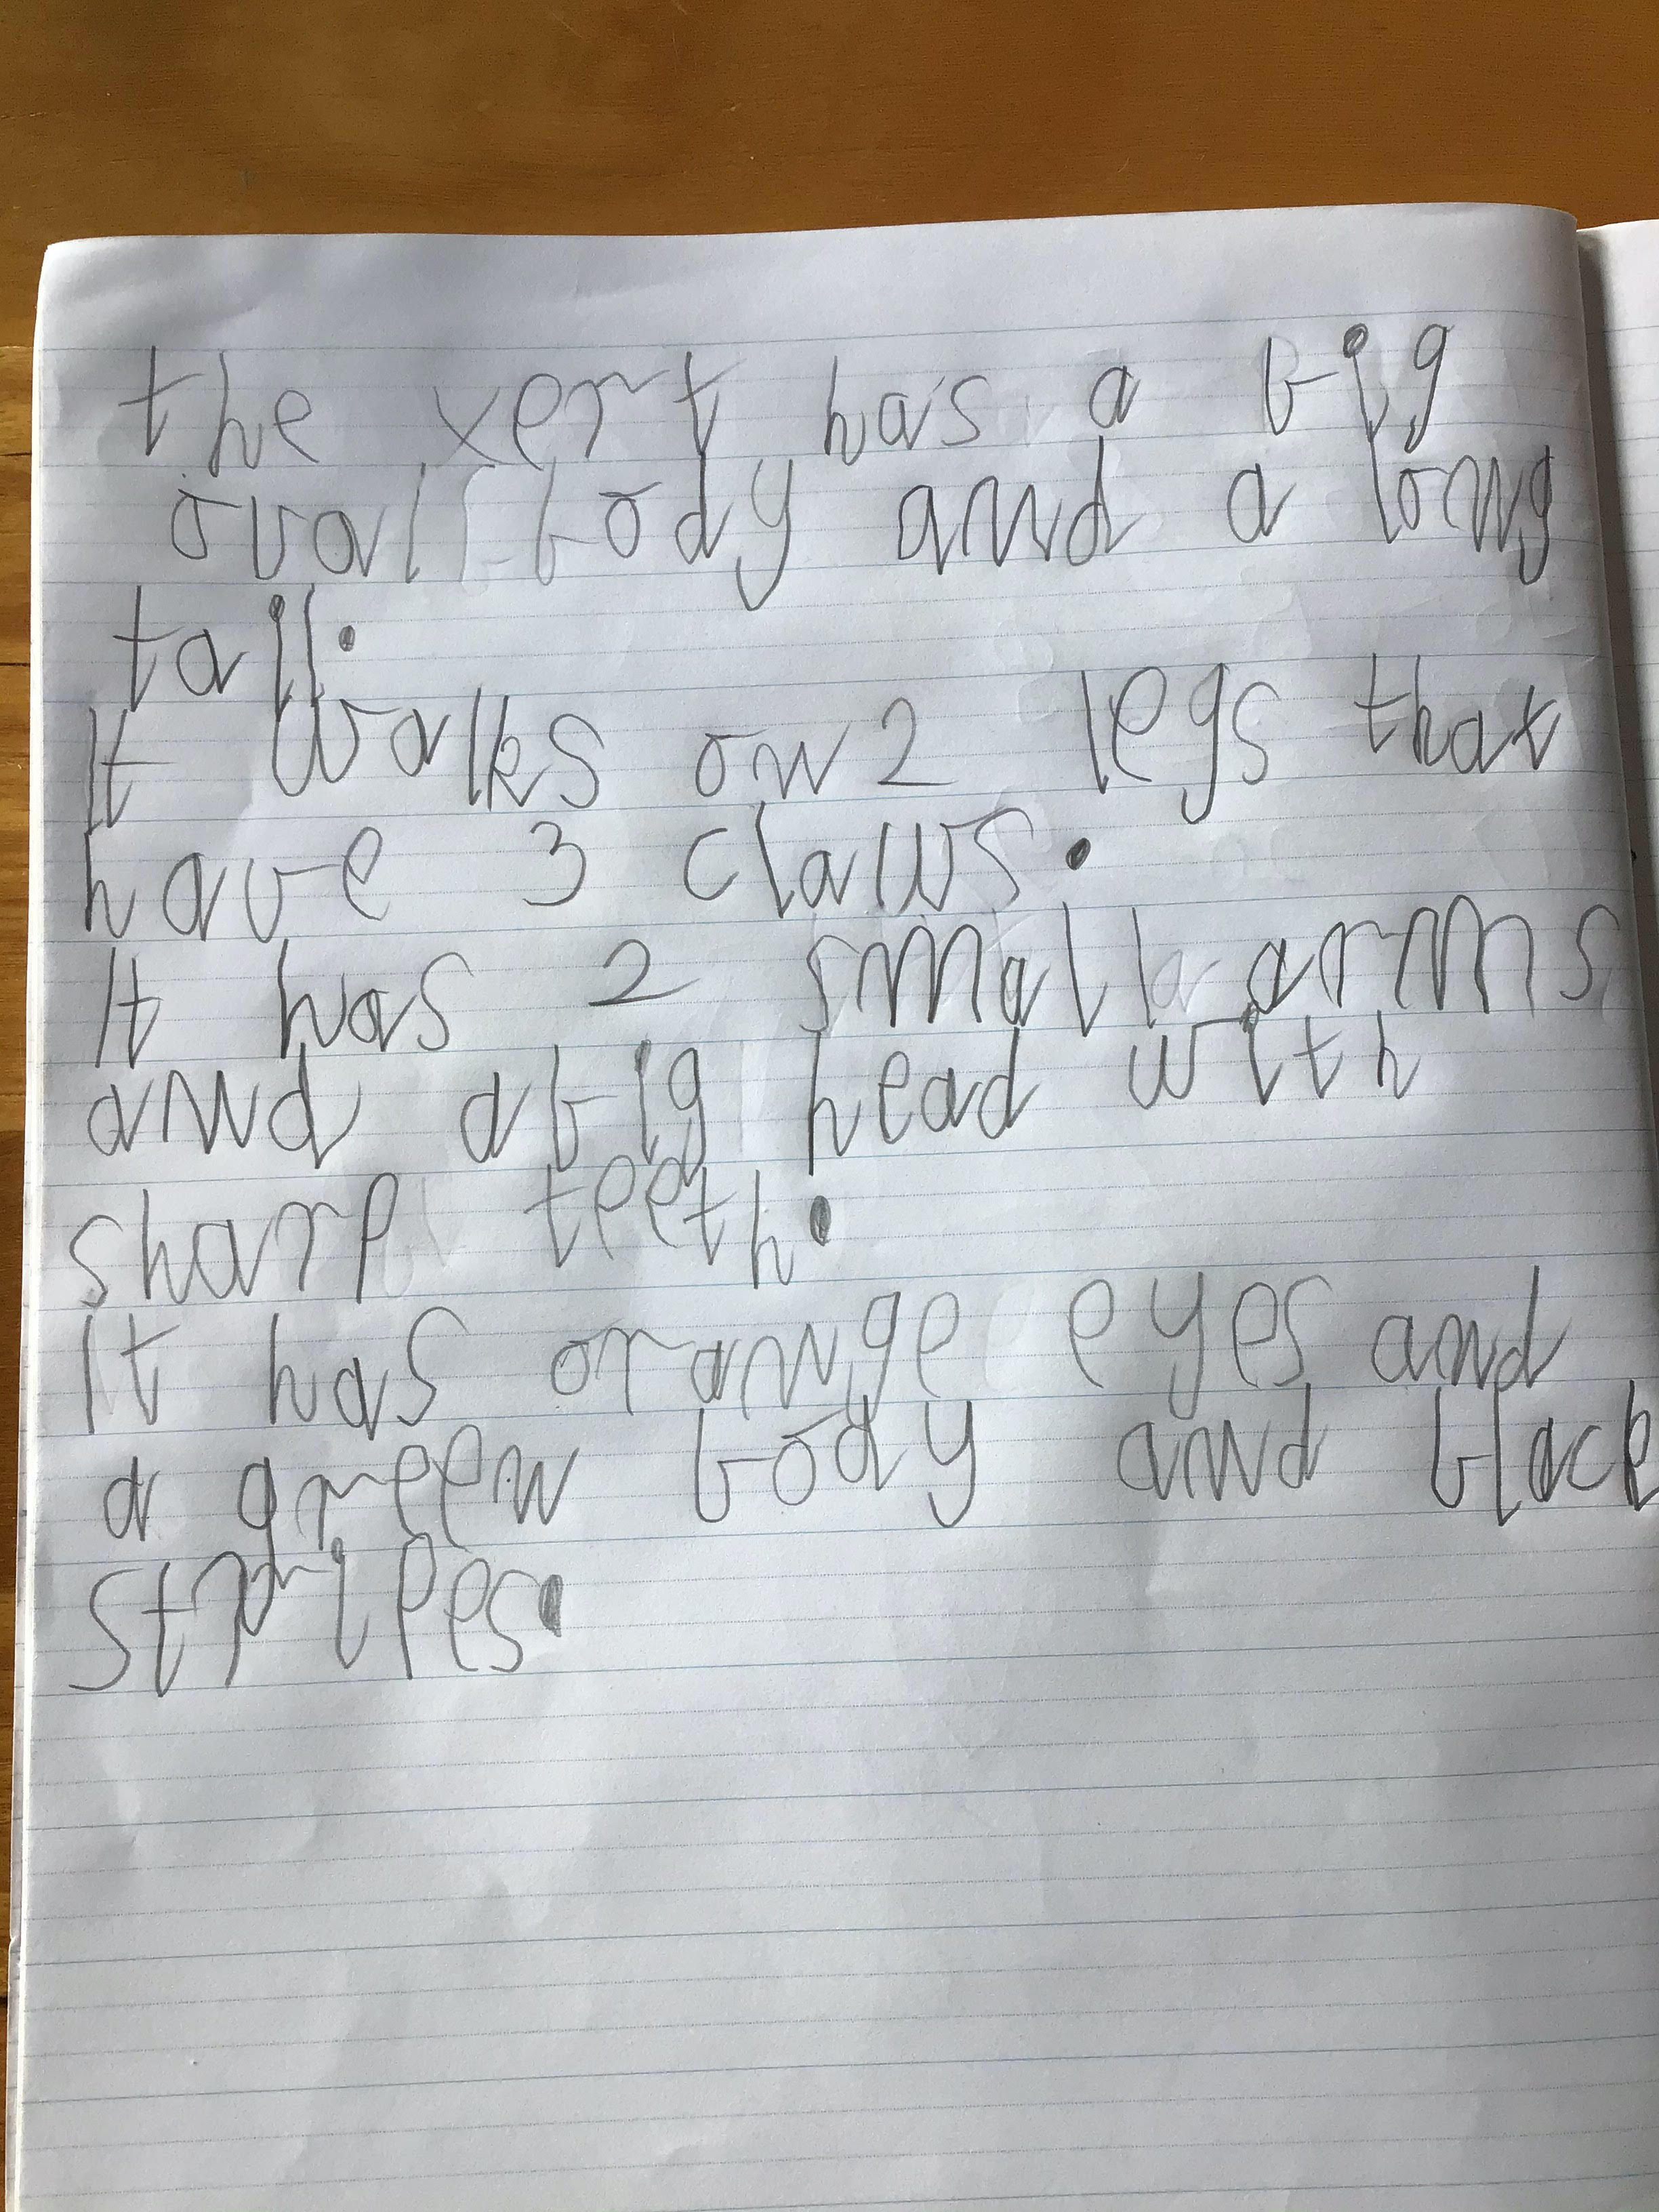 the xert has a big
oval body and a long
tail.
It walks on 2 legs that
have 3 claws.
It has 2 small arms
and a big head with
sharp teeth.
It has orange eyes and
a green body and black
stripes.